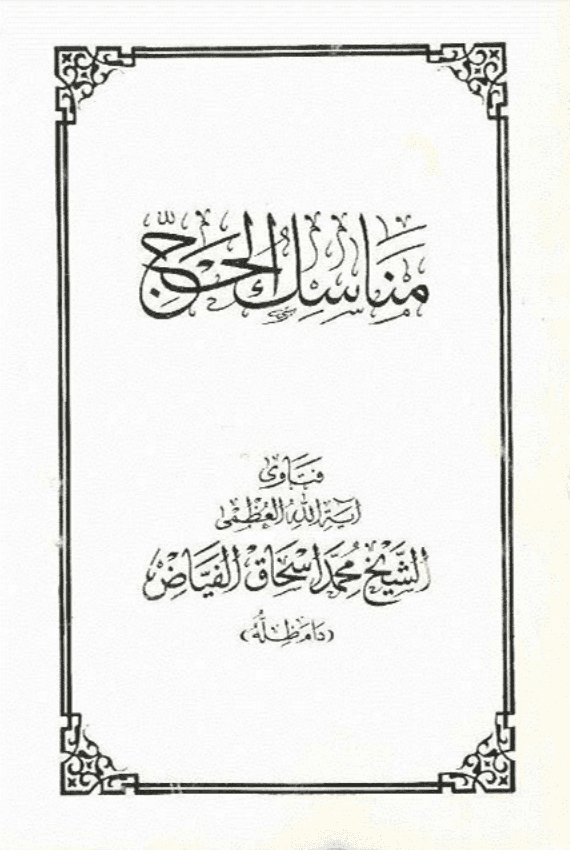 مَنَاسِكُ الحَجّ
فتَاوى
آيَةِ اللهِ العُظمى
الشَّيخ مُحمَّد اسْحَاق الفَيَّاض
(دَامَ ظِلُّهُ)